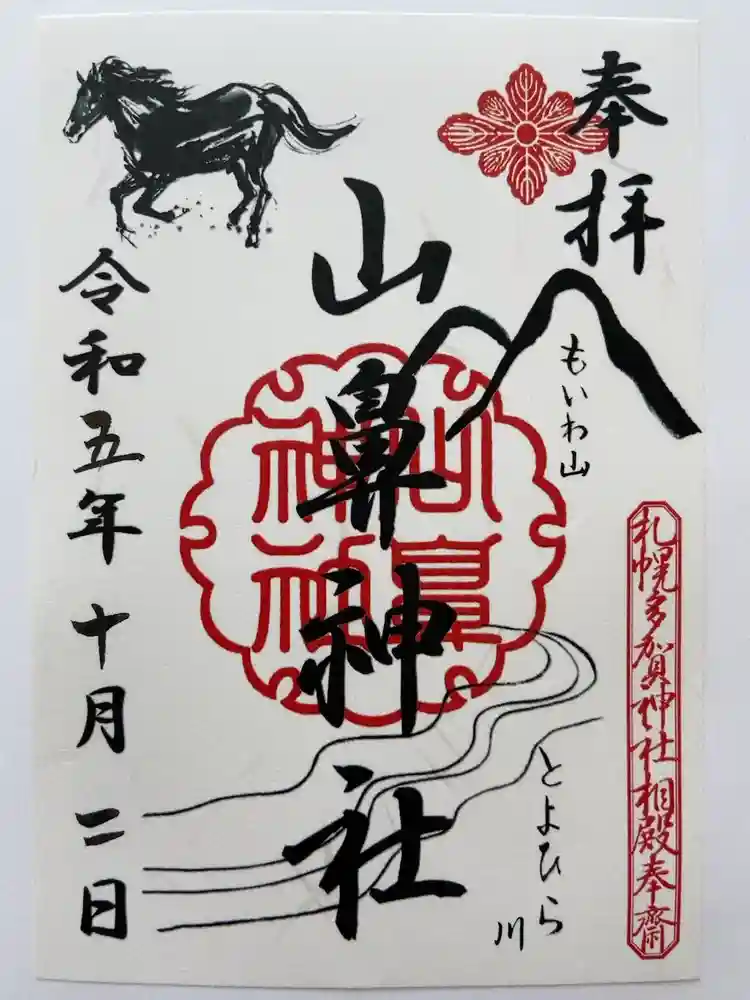 奉拝
もいわ山
札幌多賀神社相殿奉齋
山鼻神社
山鼻
神社
とよひら川
令和五年十月二日